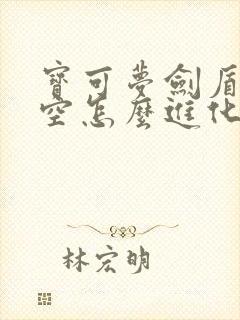 寶可夢劍盾
空怎麼進化
林宏明